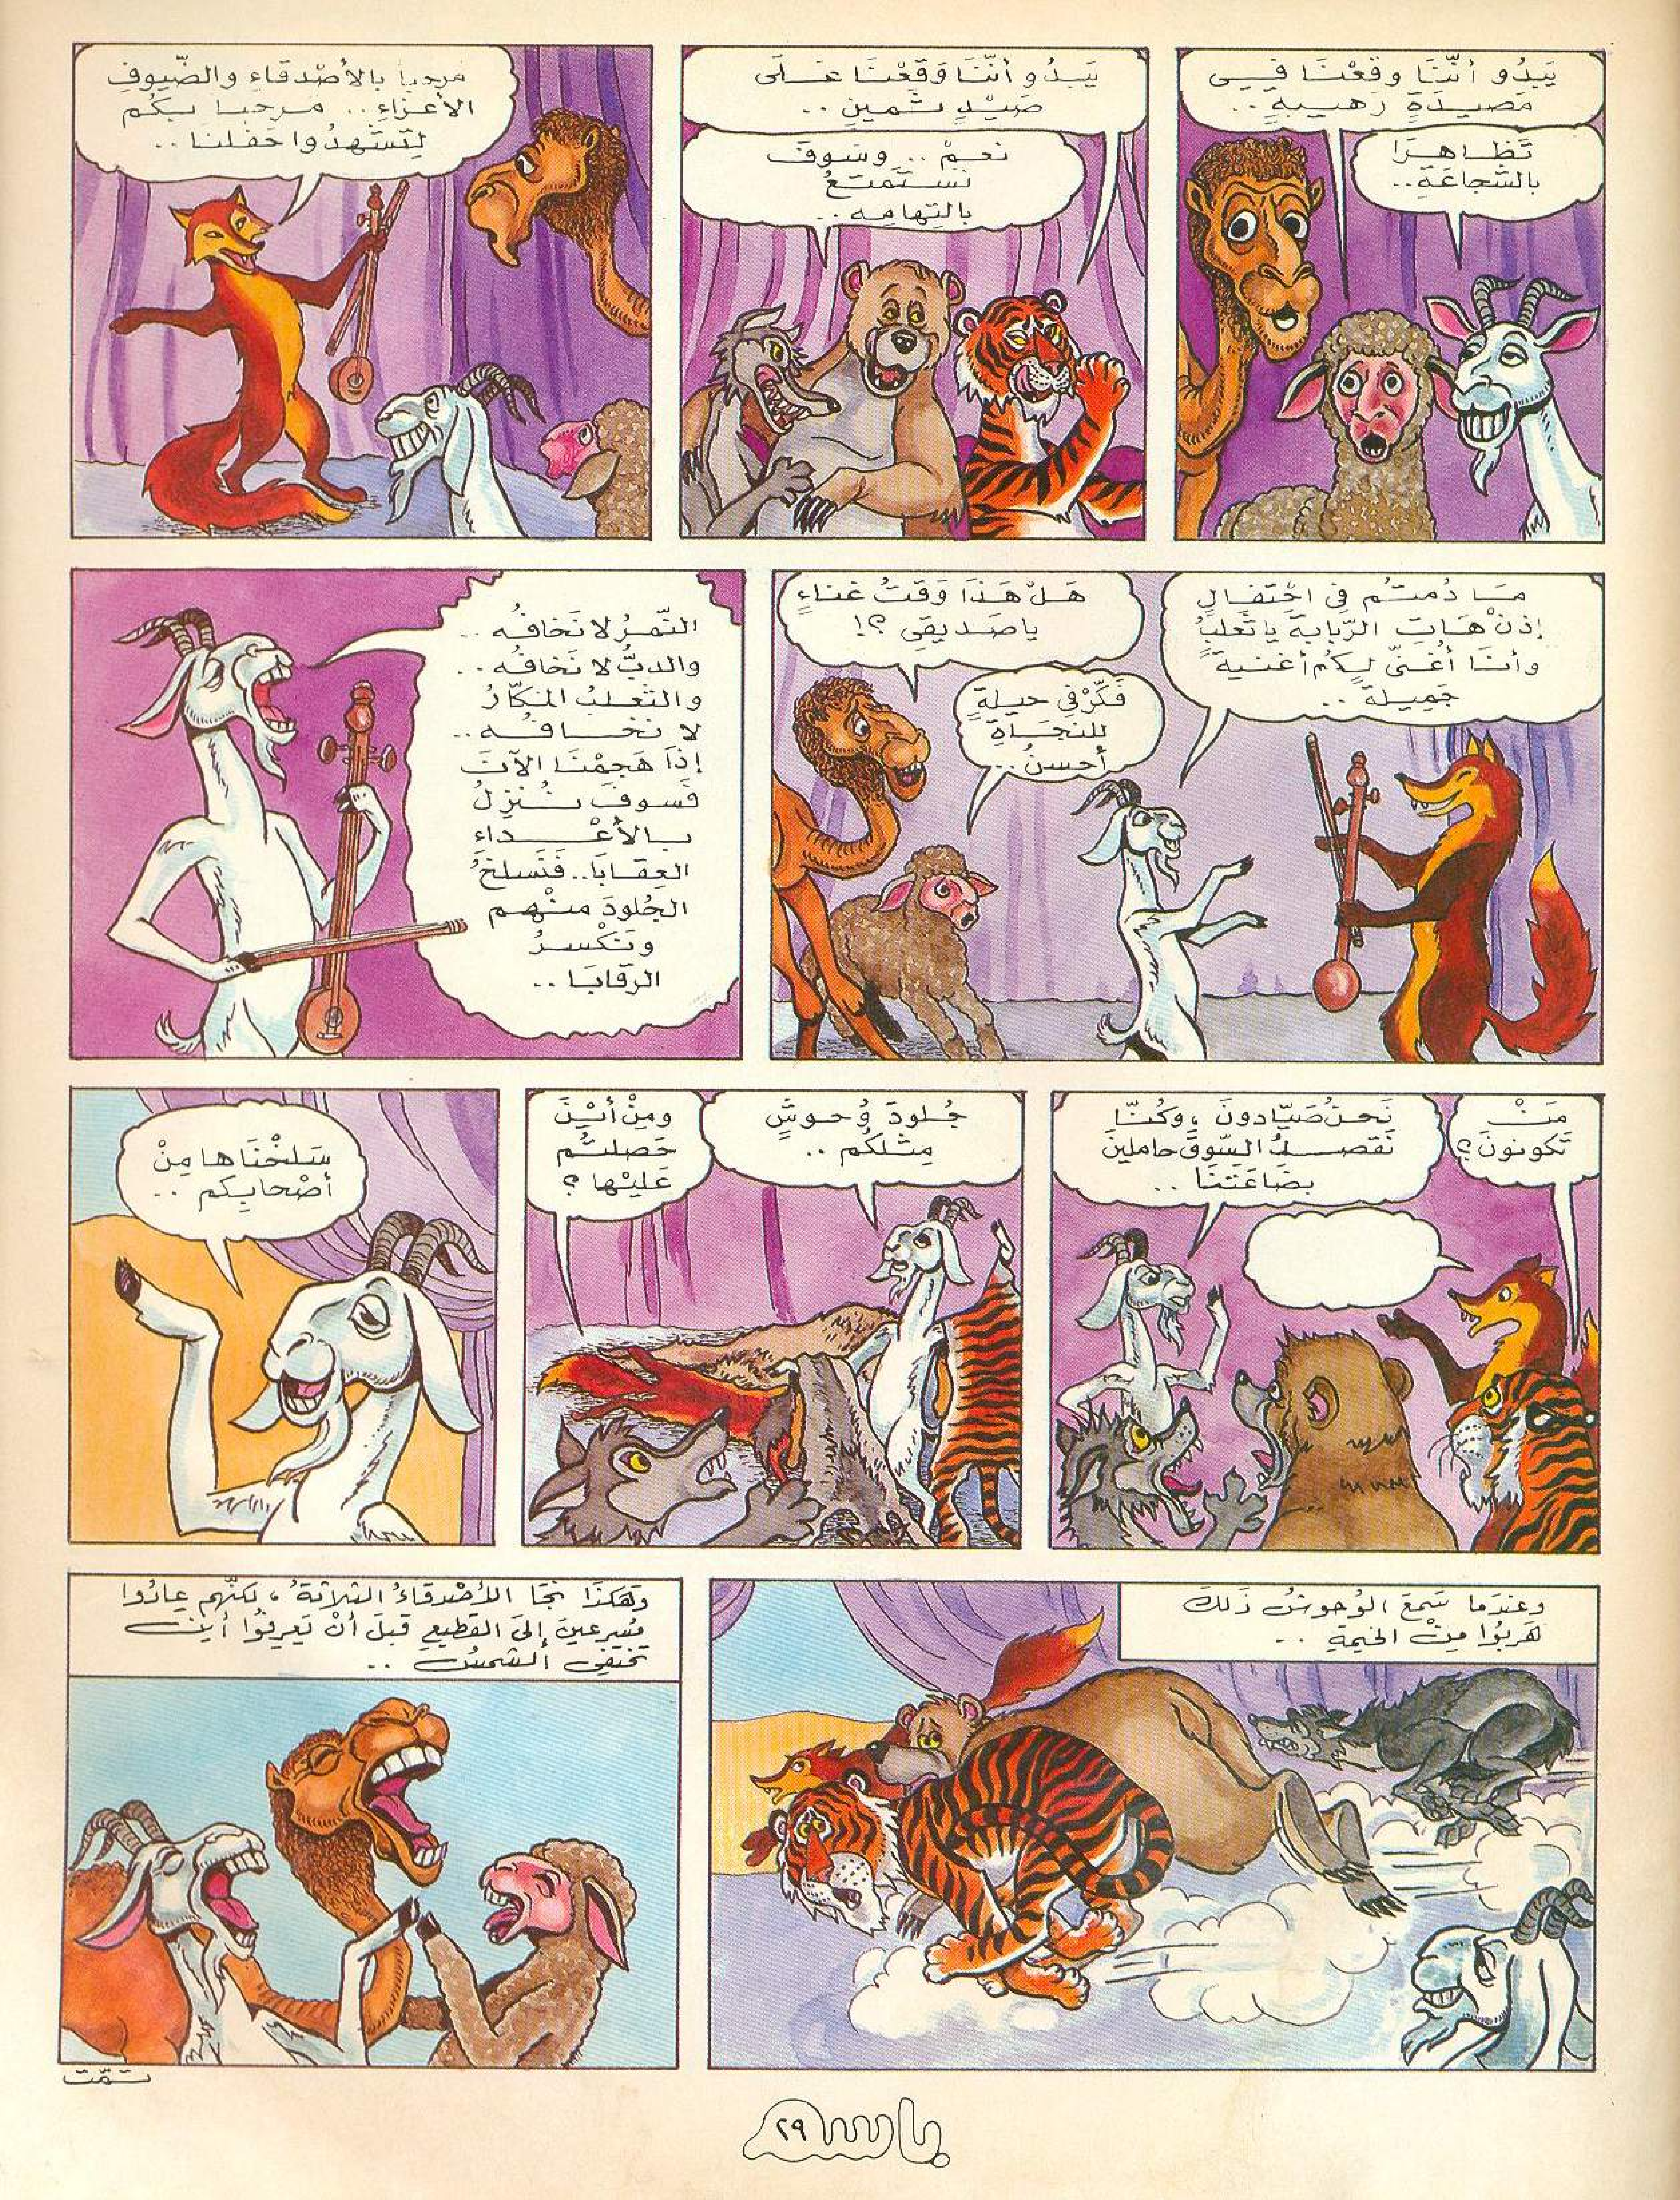 يَبْدُو أنَّنَا وقَعْنَا فِي
مَصيدَةٍ رَهيبةٍ ..
تَظَاهَرَا
بالشَّجاعَةِ..
يَبدُو أنَّنَا وَقَعْنَا عَلَى
صَيْدٍ ثَمينٍ ..
نعمْ .. وسَوفَ
نَستَمتعُ
بالتِهامِهِ ..
مَرحباً بالأصْدقَاءِ والضُّيوفِ
الأعزاءِ .. مَرحباً بكُم
لِتَشهدُوا حَفلنا ..
مَا دُمتُم فِي احْتفَالٍ
إذنْ هَاتِ الرَّبابةَ يا ثَعلبُ
وأنَا أُغنّي لكُم أغنيةً
جَميلةً ..
هَلْ هَذَا وَقتُ غناءٍ
ياصَديقِي ؟!
فَكِّرْ فِي حيلةٍ
للنجَاةِ
أحسنُ ..
النَّمرُ لا نَخافُه ..
والدبُّ لا نَخافُه ..
والثَّعلبُ المَكَّارُ
لا نخَافُه ..
إذَا هَجمْنَا الآنَ
فَسوفَ نُنزِلُ
بالأعْداءِ
العِقَابَا.. فَنَسلخُ
الجُلودَ منْهم
ونَكْسرُ
الرقابَا ..
مَنْ
تَكونونَ ؟
نَحنُ صَيَّادونَ ، وكُنَّا
نَقصدُ السُّوقَ حاملينَ
بضَاعَتَنَا ..
جُلودَ وُحوشٍ
مِثلكُم ..
ومِنْ أيْنَ
حَصلتُم
عَليْها ؟
سَلخْنَاها مِنْ
أصْحابِكم ..
وعندَما سَمعَ الوُحوشُ ذَلكَ
هَربُوا مِنْ الخَيمةِ ..
وهَكذَا نَجَا الأصْدقَاءُ الثلاثةُ ، لكنَّهم عادُوا
مُسرعينَ إلَى القَطيعِ قبلَ أنْ يَعرِفُوا أينَ
تَختفِي الشمسُ ..
تمَّت
باسم
٢٩